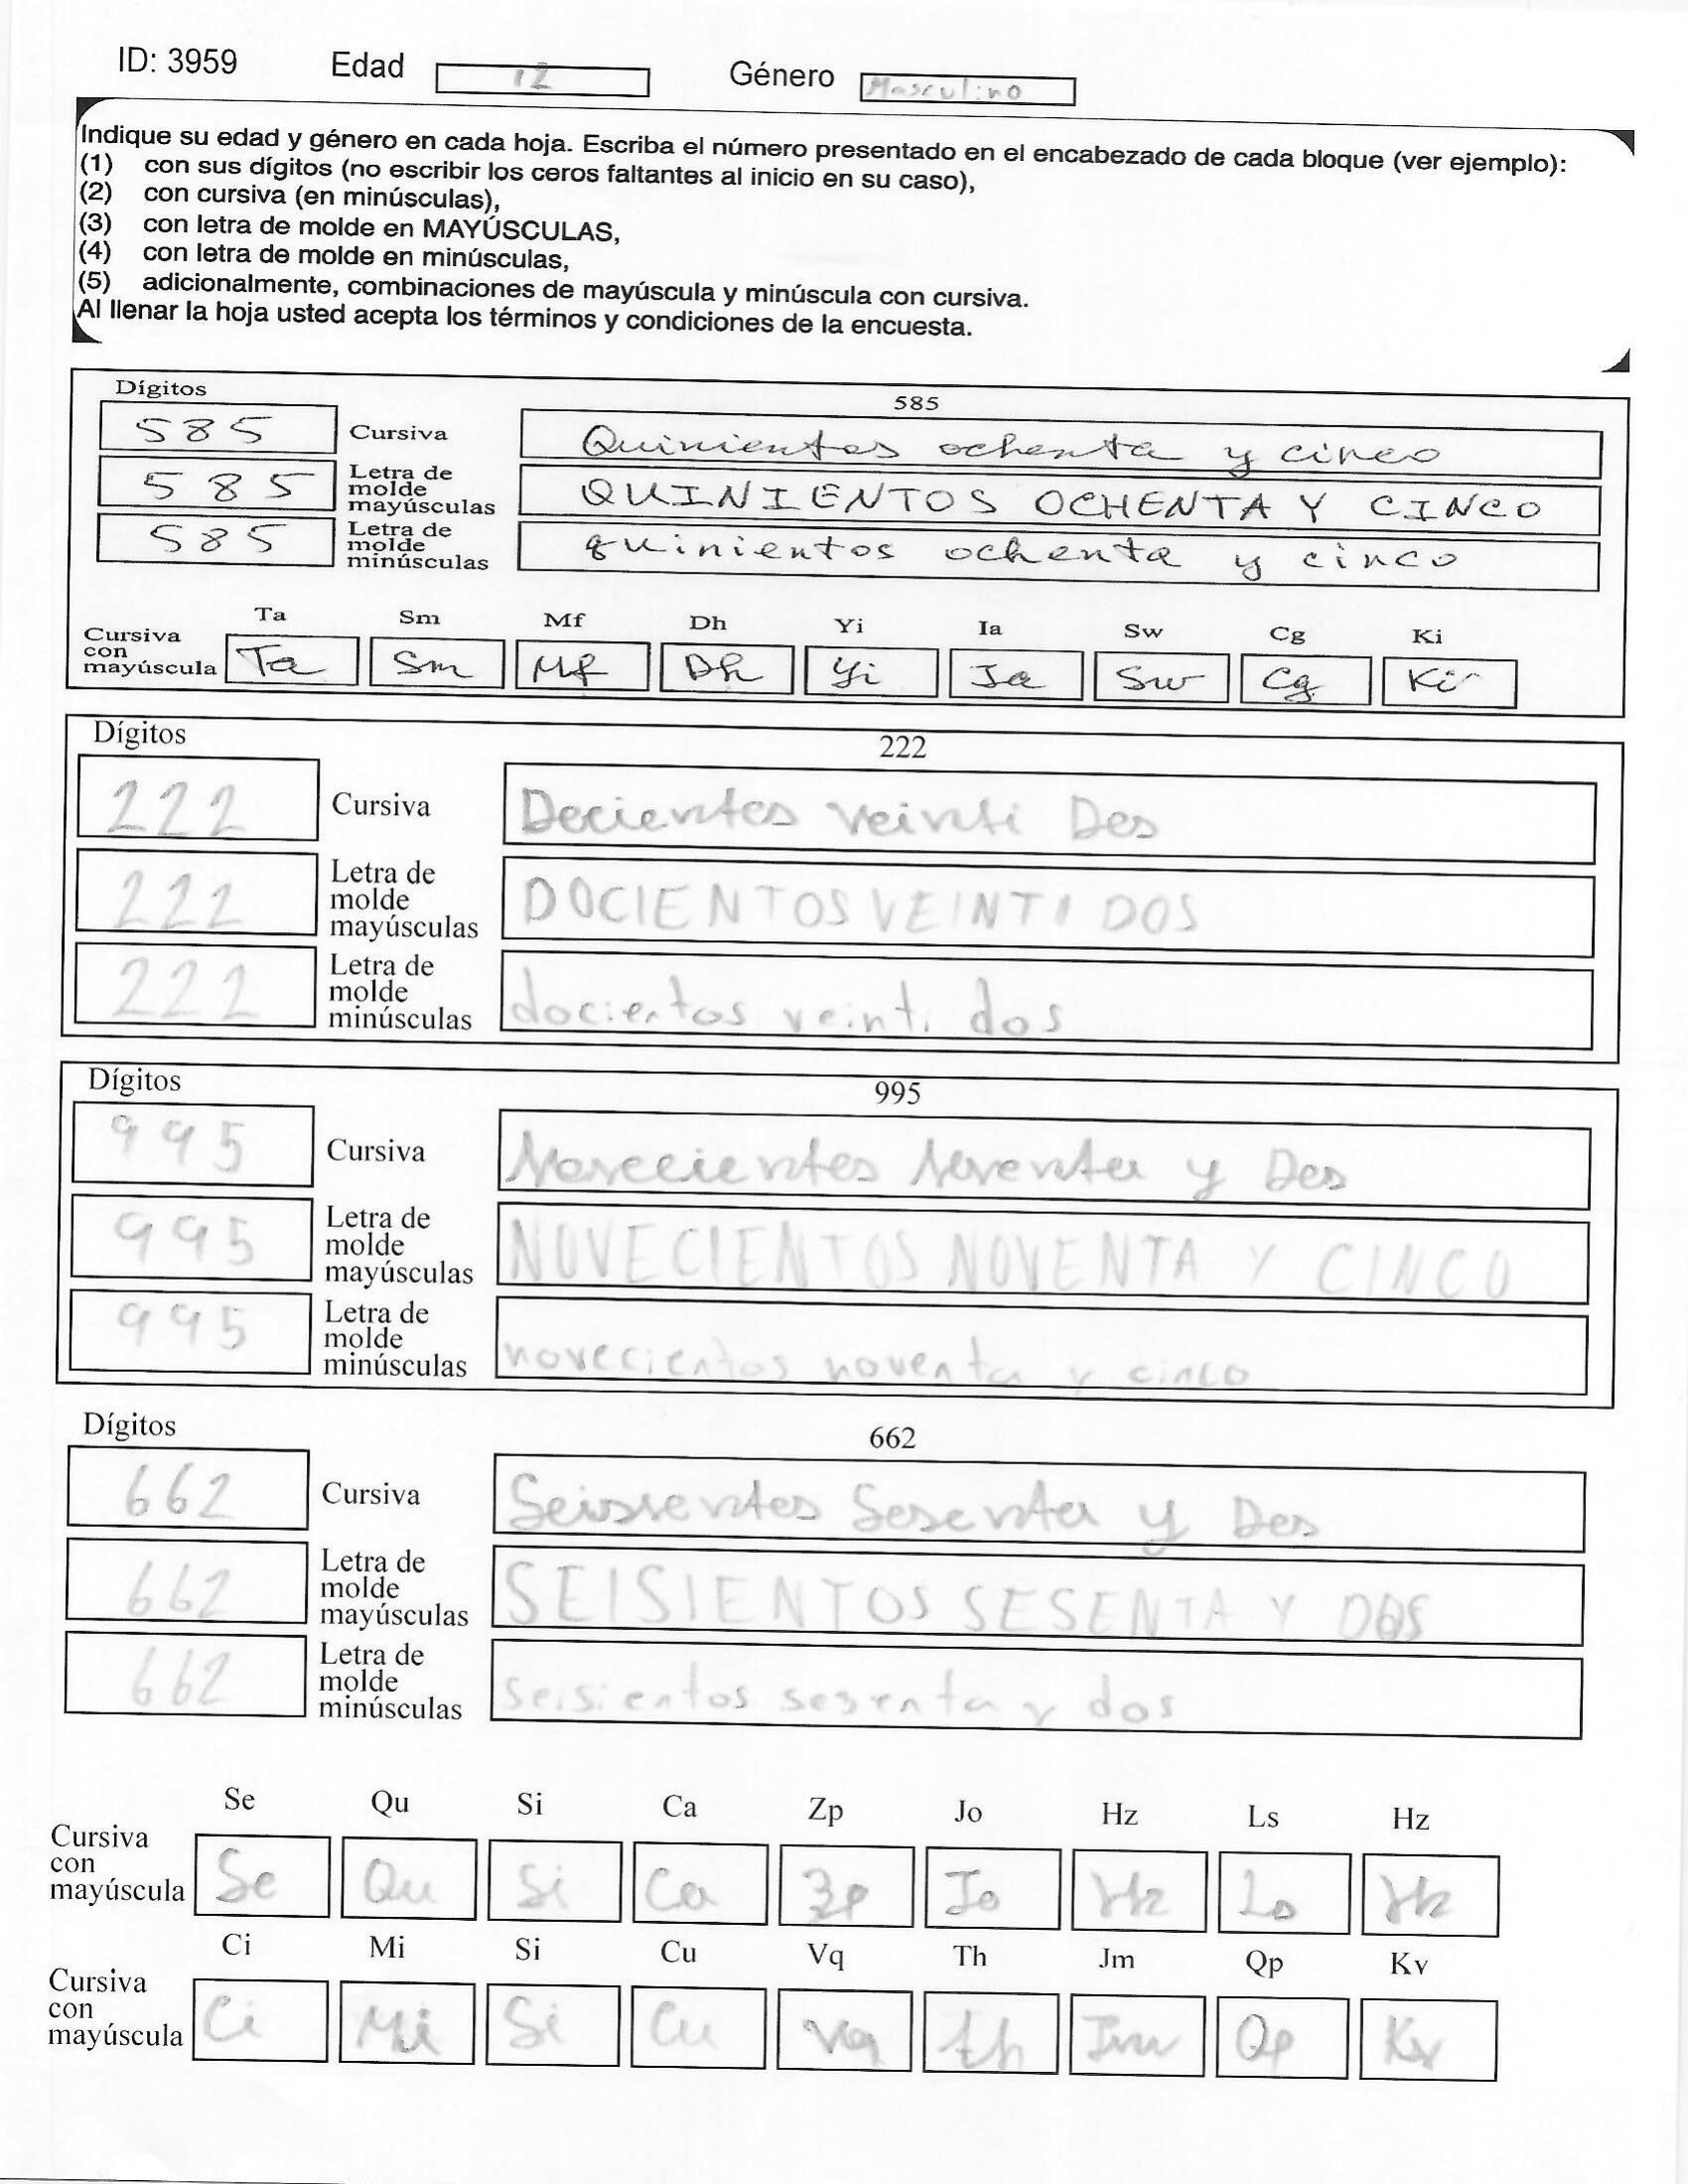 ID: 3959 Edad 12 Género Masculino
Indique su edad y género en cada hoja. Escriba el número presentado en el encabezado de cada bloque (ver ejemplo):
(1) con sus dígitos (no escribir los ceros faltantes al inicio en su caso),
(2) con cursiva (en minúsculas),
(3) con letra de molde en MAYÚSCULAS,
(4) con letra de molde en minúsculas,
(5) adicionalmente, combinaciones de mayúscula y minúscula con cursiva.
Al llenar la hoja usted acepta los términos y condiciones de la encuesta.
Dígitos 585
585 Cursiva Quinientos ochenta y cinco
585 Letra de molde mayúsculas QUINIENTOS OCHENTA Y CINCO
585 Letra de molde minúsculas quinientos ochenta y cinco
Ta Sm Mf Dh Yi Ia Sw Cg Ki
Cursiva con mayúscula Ta Sm Mf Dh Yi Ia Sw Cg Ki
Dígitos 222
222 Cursiva Docientos veinti Dos
222 Letra de molde mayúsculas DOCIENTOS VEINTI DOS
222 Letra de molde minúsculas docientos veinti dos
Dígitos 995
995 Cursiva Novecientos Noventa y Dos
995 Letra de molde mayúsculas NOVECIENTOS NOVENTA Y CINCO
995 Letra de molde minúsculas novecientos noventa y cinco
Dígitos 662
662 Cursiva Seisientos Sesenta y Dos
662 Letra de molde mayúsculas SEISIENTOS SESENTA Y DOS
662 Letra de molde minúsculas seisientos sesenta y dos
Se Qu Si Ca Zp Jo Hz Ls Hz
Cursiva con mayúscula Se Qu Si Ca Zp Jo Hz Ls Hz
Ci Mi Si Cu Vq Th Jm Qp Kv
Cursiva con mayúscula Ci Mi Si Cu Vq th Jm Qp Kv